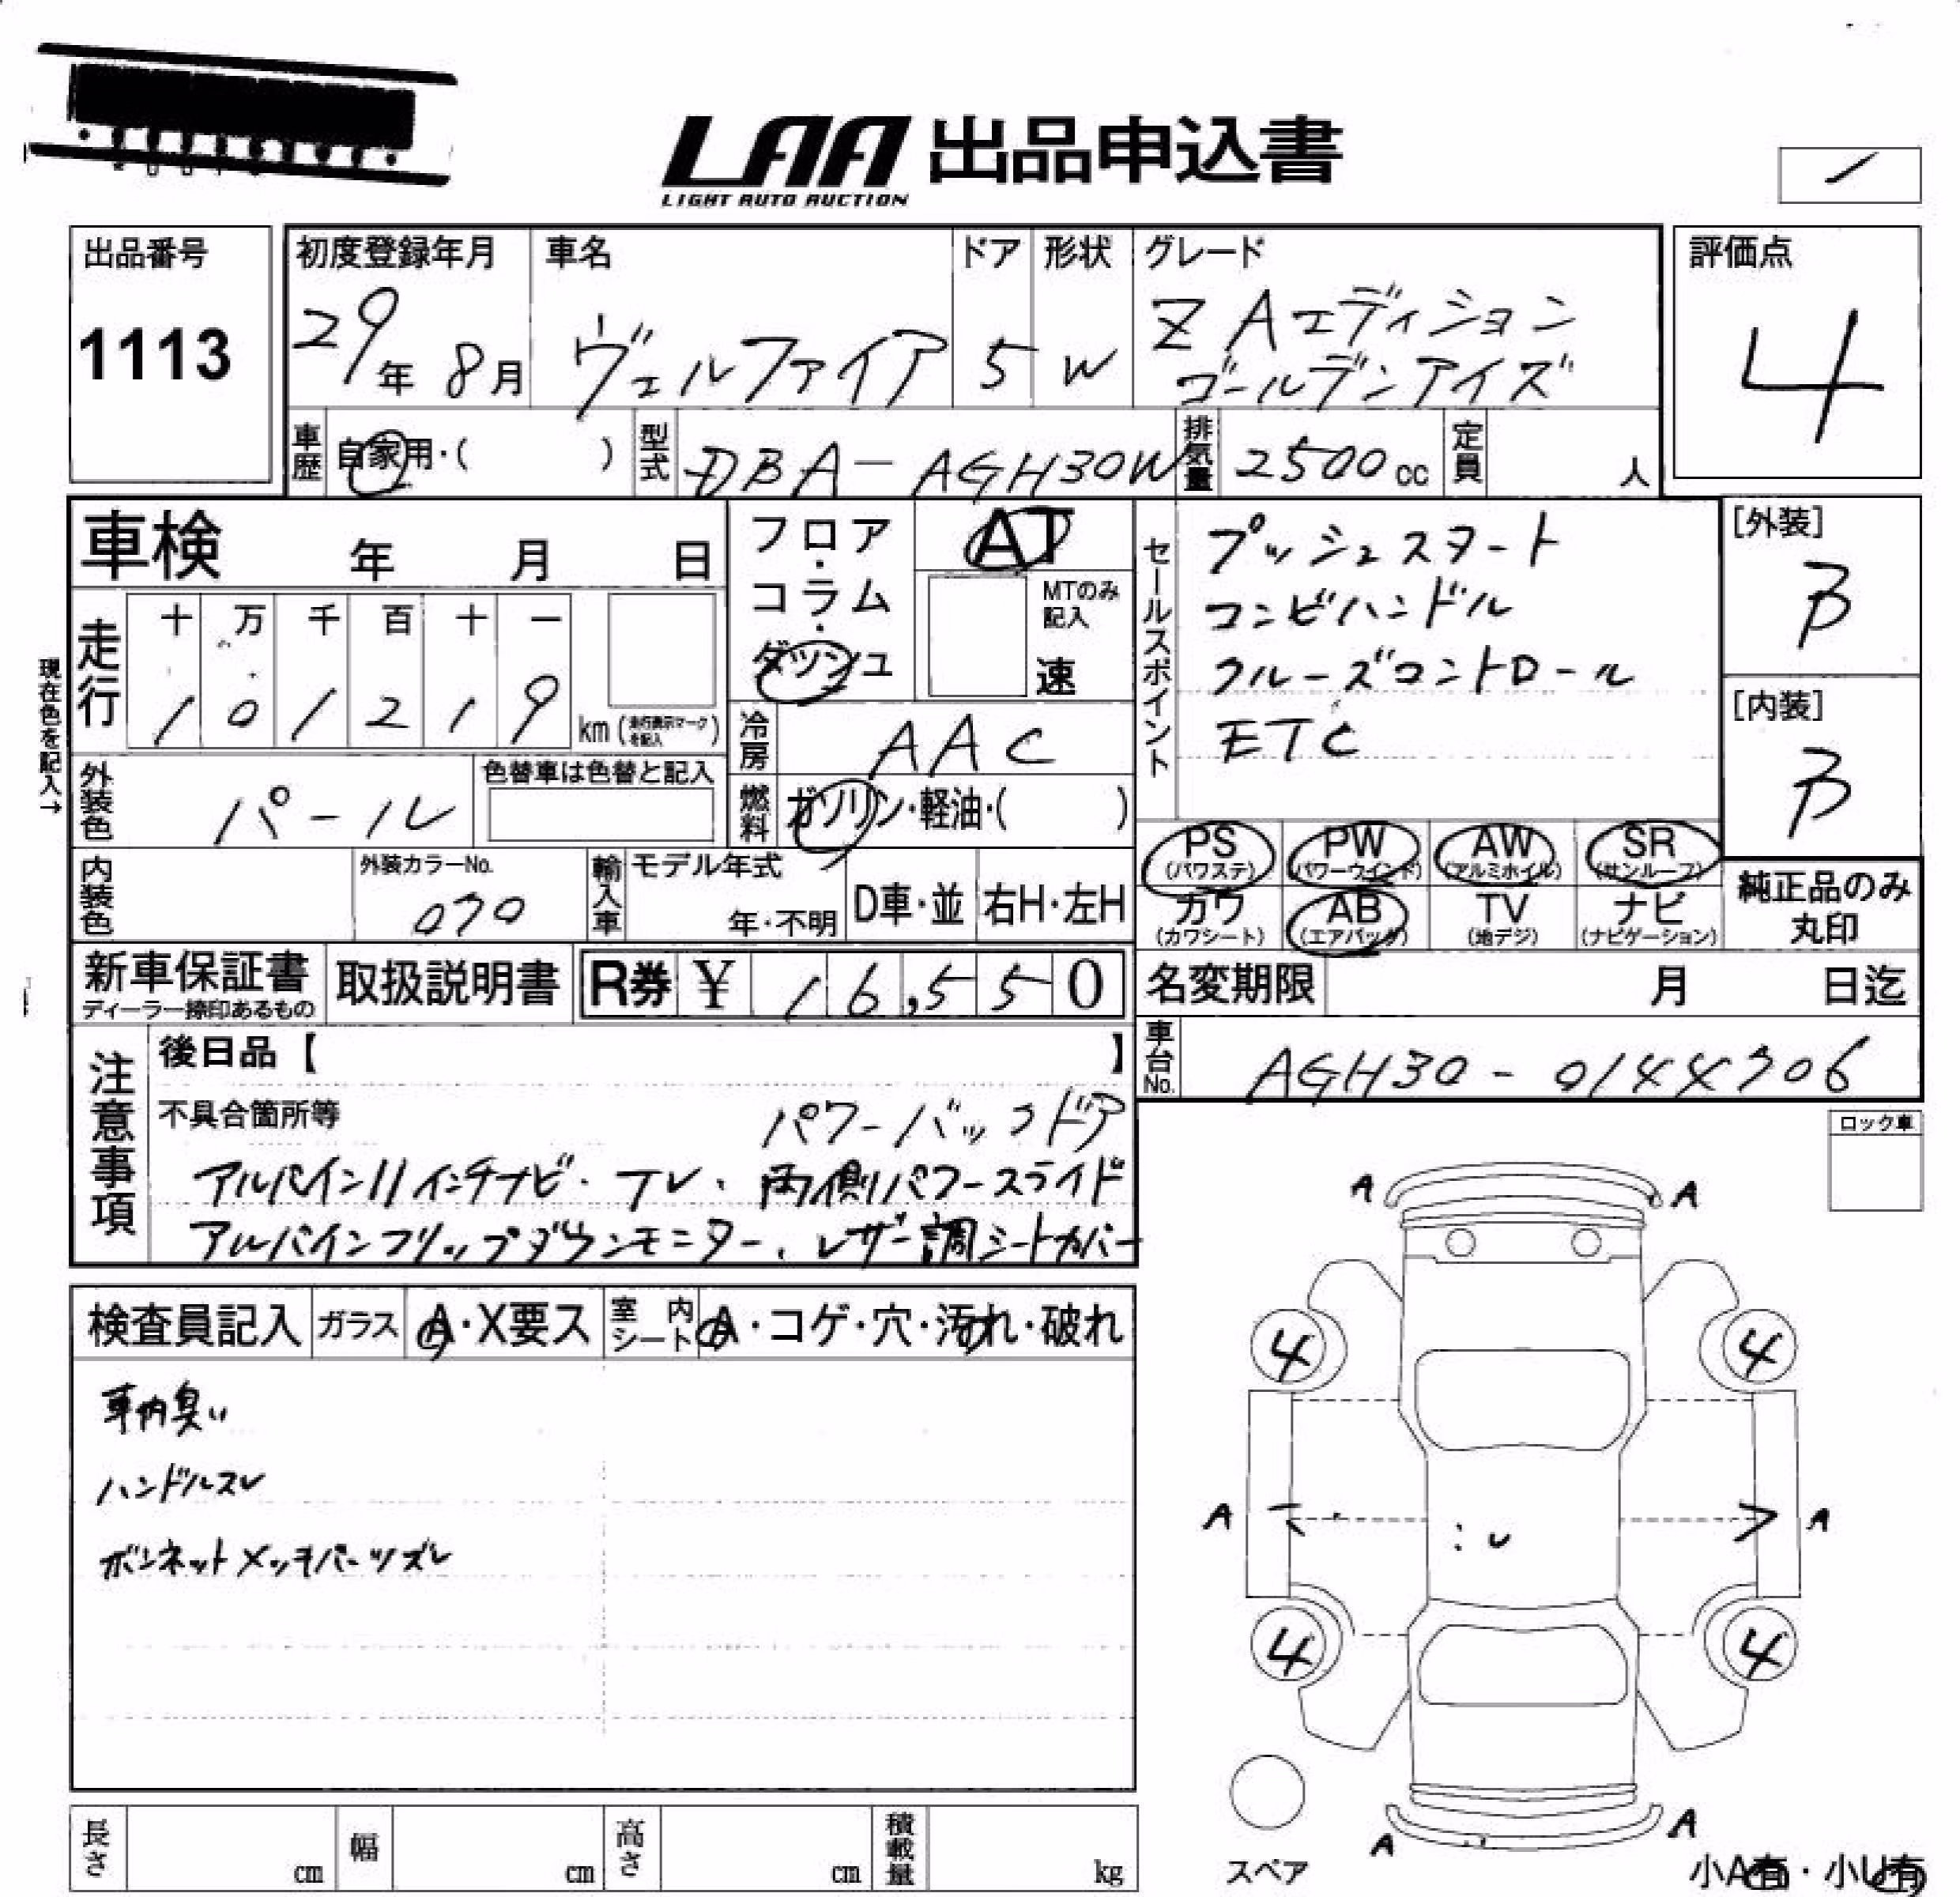 LAA 出品申込書
LIGHT AUTO AUCTION
出品番号
1113
初度登録年月
29年 8月
車名
ヴェルファイア
ドア
5
形状
W
グレード
Z Aエディション
ゴールデンアイズ
評価点
4
車歴
自家用・( )
型式
DBA-AGH30W
排気量
2500cc
定員
人
車検 年 月 日
現在色を記入→
走行
十 万 千 百 十 一
1 0 1 2 1 9
km (走行表示マークを記入)
フロア・コラム・ダッシュ
AT
MTのみ記入
速
セールスポイント
プッシュスタート
コンビハンドル
クルーズコントロール
ETC
[外装]
B
[内装]
B
冷房
AAC
燃料
ガソリン・軽油・( )
外装色
パール
色替車は色替と記入
内装色
外装カラーNo.
070
輸入車
モデル年式
年・不明
D車・並
右H・左H
PS
(パワステ)
PW
(パワーウインド)
AW
(アルミホイル)
SR
(サンルーフ)
カワ
(カワシート)
AB
(エアバック)
TV
(地デジ)
ナビ
(ナビゲーション)
純正品のみ
丸印
新車保証書
ディーラー捺印あるもの
取扱説明書
R券 ¥ 16,550
名変期限 月 日迄
車台No.
AGH30-0144706
注意事項
後日品【 】
不具合箇所等
パワーバックドア
アルパイン11インチナビ・テレ、両側パワースライド
アルパインフリップダウンモニター、レザー調シートカバー
ロック車
検査員記入
ガラス
A・X要ス
室内シート
A・コゲ・穴・汚れ・破れ
車内臭い
ハンドルスレ
ボンネットメッキパーツズレ
A A
4 4
A A
4 4
A A
スペア
小A有・小U有
長さ cm
幅 cm
高さ cm
積載量 kg